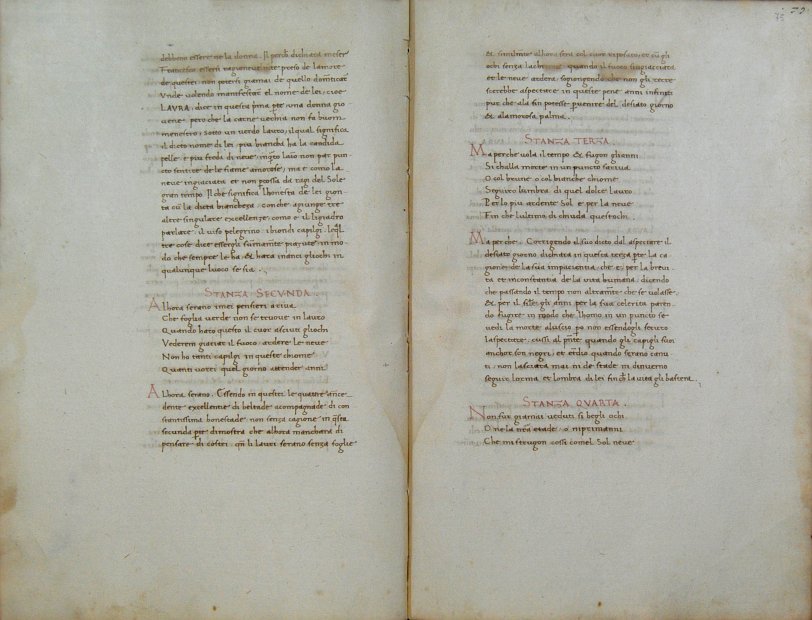 debbono essere ne la donna. Il perch dichiara meser
Francisco essere ragionevemte preso de lamore
de questei non potersi giamai de quello domēticar
Vnde volendo manifestar el nome de lei, cioe
LAVRA, dice in questa pma pte, una donna gio
vene: pero che la carne vechia non fa buon
menestro; sotto un verdo lauro, il qual significa
il dicto nome di lei, piu bianchi ha la candida
pelle, e piu freda di neve,
cto sentite de le fiame amorose, ma e como la
neve ingiaciata et non percossa da ragi del Sole
gran tempo. Il che significa lhonesta de lei gion
ta cū la dicta bianchega, con che agiunge tre
altre singulare excellenze, como e il ligiadro
parlare, il viso pelegrino, i biondi capilgi, leqł
tre cose dice essergli sumamte piaiute in mo
do che sempre le ha, et hara inanci gliochi in
qualunque luoco se sia.
STANZA SECVNDA.
Alhora serano imei pensieri ariva
Che foglia verde non se truove in lauro
Quando haro questo il cuor asciuti gliochi
Vederem giaciar il fuoco, ardere le neve
Non ho tanti capilgi in queste chiome
Quanti vorrei quel giorno attender anni
Alhora serano. Essendo in questei le quatre ance
dente excellentie di beltade acompagnade di con
stantissima honestade non senza cagione in qsta
secunda pte dimostra che alhora manchara di
pensare di costei, qn li lauri serano senza foglie
75
et similmte alhora sera col cuor riposato, et cū gli
ochi senza lachrime, quando il fuoco sia giacciara
et le neve ardera, sogiongendo che non gli recre
scerebbe aspectare in queste pene anni infiniti
pur che ala fin potesse puenire del desiato giorno
et alamorosa palma.
STANZA TERZA.
Ma perche vola il tempo et fugon glianni
Si challa morte in un puncto sariva
O col brune o col bianche chiome
Seguiro lumbra di quel dolce lauro
Per lo piu ardente Sol e per la neve
Fin che lultimo di chiuda questochi.
Ma perche. Corrigendo il suo dicto dal aspectare il
desiato giorno dichiara in questa terza pte la ca
gione de la sua impacientia, che e, per la brevi
ta et inconstantia de la vita humana, dicendo
che passando il tempo non altramte che se volasse
et per il simel gli anni per la sua celerita paren
do fugire in modo che lhomo in un puncto se
vedi la morte al uscio, po non essendogli securo
laspectare, cussi al pnte quando gli capigli suoi
anchor son negri, et etdio quando serano canu
ti, non lassiara mai ni de stade ni dinverno
seguir lorma et lombra di lei finch la vita gli bastera.
STANZA QVARTA.
Non fur giamai veduti si begli ochi
O ne la nrā etade, o nipriminanni
Che mi strugon cossi comel Sol neve